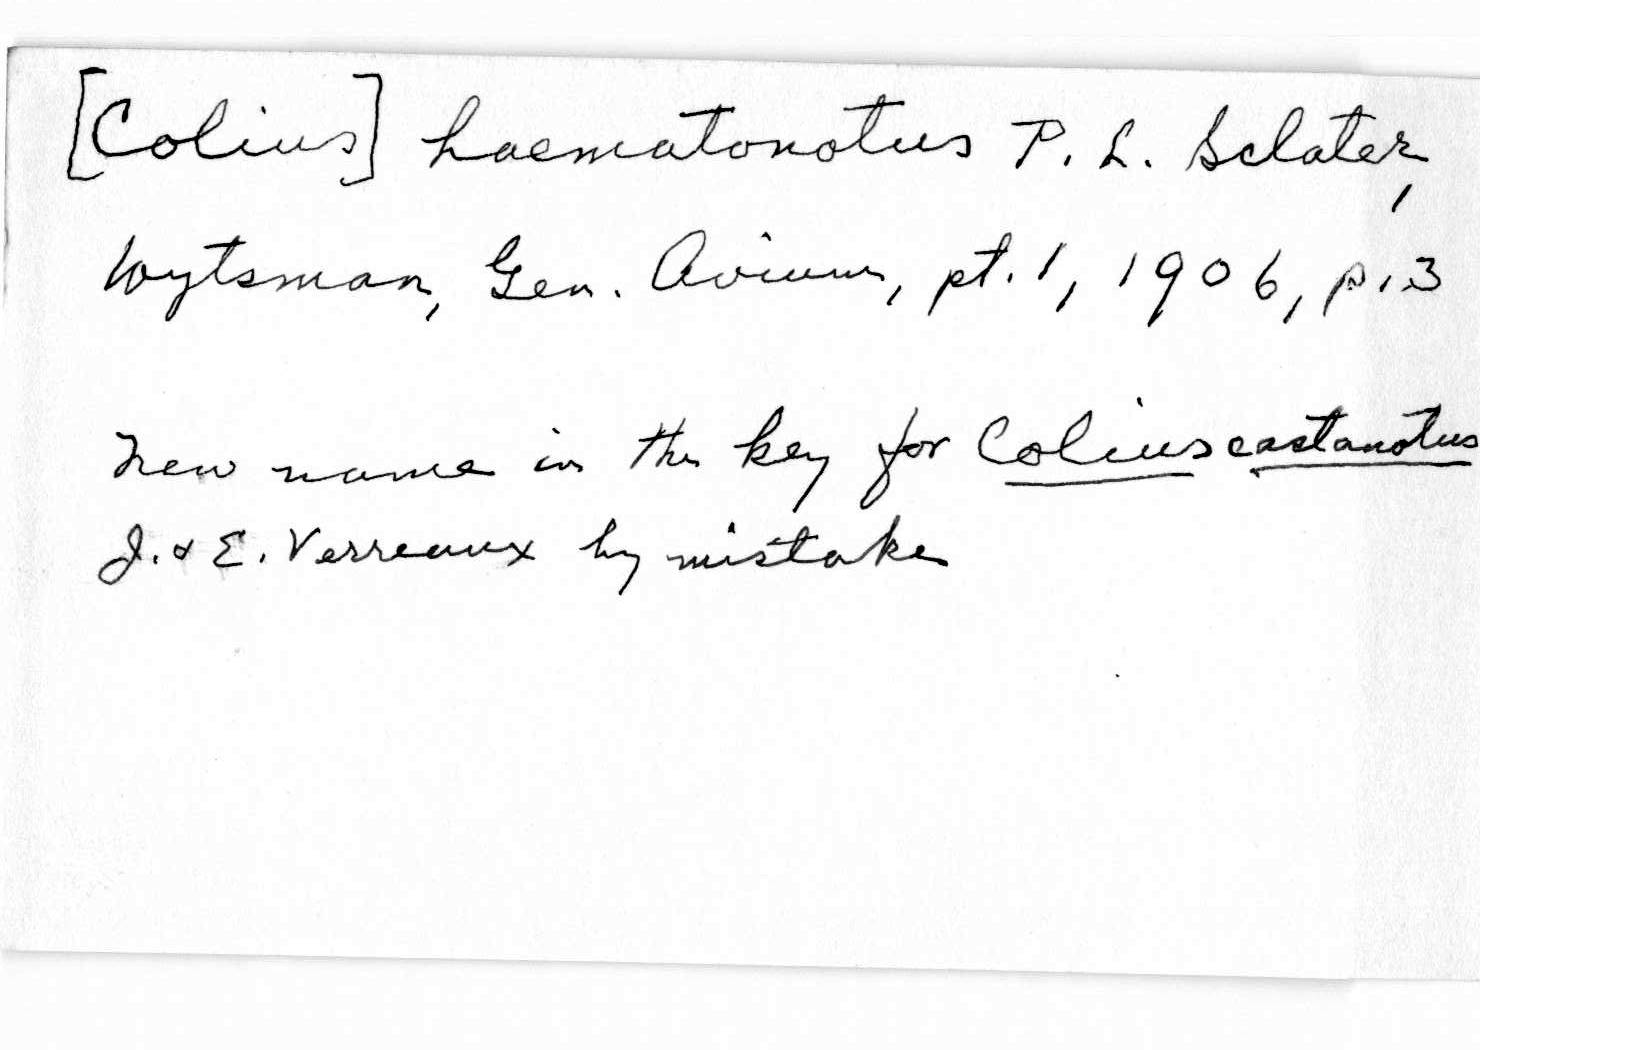 [Colius] haematonotus P. L. Sclater,
Wytsman, Gen. Avium, pt. 1, 1906, p. 3
New name in the key for Colius castanotus
J. & E. Verreaux by mistake